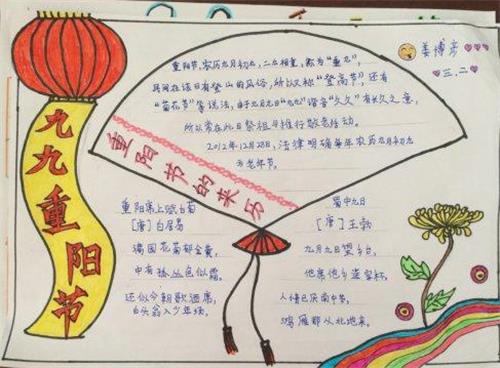 九九重阳节
姜博彦
三.二
重阳节,农历九月初九,二九相重,称为"重九",
民间在该日有登山的风俗,所以又称"登高节",还有
"菊花节"等说法,由于九月九日"九九"谐音"久久"有长久之意,
所以常在此日祭祖与推行敬老活动。
2012年12月28日,法律明确每年农历九月初九
为老年节。
重阳节的来历
重阳席上赋白菊
[唐]白居易
满园花菊郁金黄,
中有孤丛色似霜。
还似今朝歌酒席,
白头翁入少年场。
蜀中九日
[唐]王勃
九月九日望乡台,
他席他乡送客杯。
人情已厌南中苦,
鸿雁那从北地来。